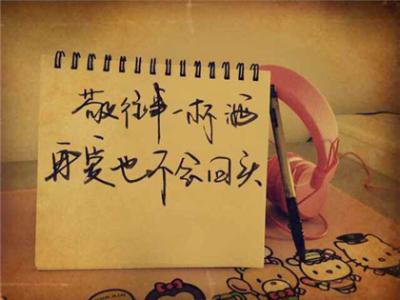 敬往事一杯酒
再爱也不会回头